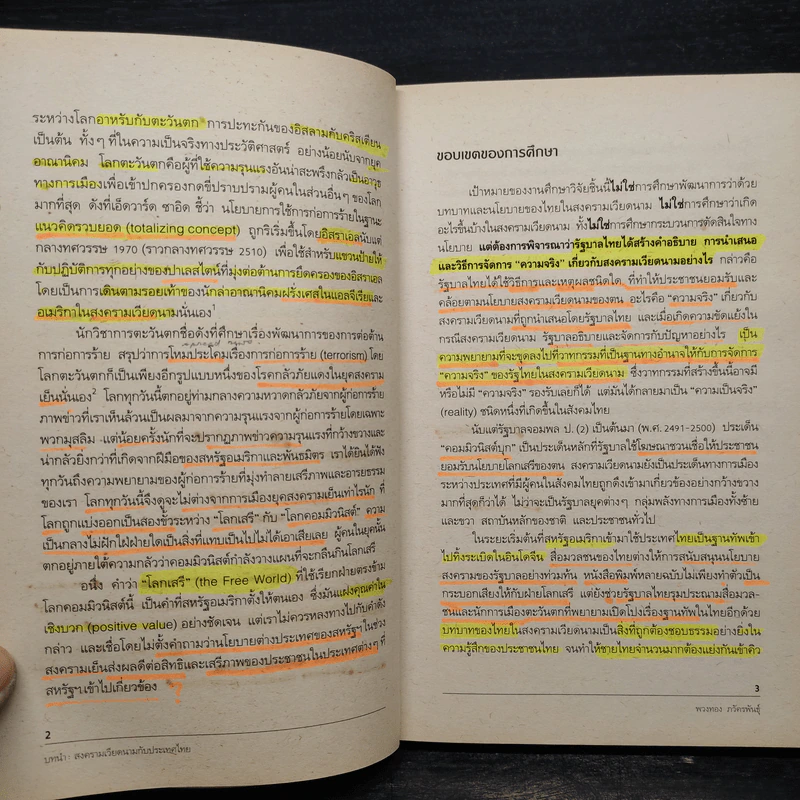 ระหว่างโลกอาหรับกับตะวันตก การปะทะกันของอิสลามกับคริสเตียน
เป็นต้น ทั้งๆ ที่ในความเป็นจริงทางประวัติศาสตร์ อย่างน้อยนับจากยุค
อาณานิคม โลกตะวันตกคือผู้ที่ใช้ความรุนแรงอันน่าสะพรึงกลัวเป็นอาวุธ
ทางการเมืองเพื่อเข้าปกครองกดขี่ปราบปรามผู้คนในส่วนอื่นๆ ของโลก
มากที่สุด ดังที่เอ็ดวาร์ด ซาอิด ชี้ว่า นโยบายการใช้การก่อการร้ายในฐานะ
แนวคิดรวบยอด (totalizing concept) ถูกริเริ่มขึ้นโดยอิสราเอลนับแต่
กลางทศวรรษ 1970 (ราวกลางทศวรรษ 2510) เพื่อใช้สำหรับแขวนป้ายให้
กับปฏิบัติการทุกอย่างของปาเลสไตน์ที่มุ่งต่อต้านการยึดครองของอิสราเอล
โดยเป็นการเดินตามรอยเท้าของนักล่าอาณานิคมฝรั่งเศสในแอลจีเรียและ
อเมริกาในสงครามเวียดนามนั่นเอง1
นักวิชาการตะวันตกชื่อดังที่ศึกษาเรื่องพัฒนาการของการต่อต้าน
การก่อการร้าย สรุปว่าการโหมประโคมเรื่องการก่อการร้าย (terrorism) โดย
โลกตะวันตกก็เป็นเพียงอีกรูปแบบหนึ่งของโรคกลัวภัยแดงในยุคสงคราม
เย็นนั่นเอง2 โลกทุกวันนี้ตกอยู่ท่ามกลางความหวาดกลัวภัยจากผู้ก่อการร้าย
ภาพข่าวที่เราเห็นล้วนเป็นผลมาจากความรุนแรงจากผู้ก่อการร้ายโดยเฉพาะ
พวกมุสลิม แต่น้อยครั้งนักที่จะปรากฏภาพข่าวความรุนแรงที่กว้างขวางและ
น่ากลัวยิ่งกว่าที่เกิดจากฝีมือของสหรัฐอเมริกาและพันธมิตร เราได้ยินได้ฟัง
ทุกวันถึงความพยายามของผู้ก่อการร้ายที่มุ่งทำลายเสรีภาพและอารยธรรม
ของเรา โลกทุกวันนี้จึงดูจะไม่ต่างจากการเมืองยุคสงครามเย็นเท่าไรนัก ที่
โลกถูกแบ่งออกเป็นสองขั้วระหว่าง "โลกเสรี" กับ "โลกคอมมิวนิสต์" ความ
เป็นกลางไม่ฝักใฝ่ฝ่ายใดเป็นสิ่งที่แทบเป็นไปไม่ได้เอาเสียเลย ผู้คนในยุคนั้น
ตกอยู่ภายใต้ความกลัวว่าคอมมิวนิสต์กำลังวางแผนที่จะกลืนกินโลกเสรี
อนึ่ง คำว่า "โลกเสรี" (the Free World) ที่ใช้เรียกฝ่ายตรงข้าม
โลกคอมมิวนิสต์นี้ เป็นคำที่สหรัฐอเมริกาตั้งให้ตนเอง ซึ่งมันแฝงคุณค่าใน
เชิงบวก (positive value) อย่างชัดเจน แต่เราไม่ควรหลงทางไปกับคำดัง
กล่าว และเชื่อโดยไม่ตั้งคำถามว่านโยบายต่างประเทศของสหรัฐฯ ในช่วง
สงครามเย็นส่งผลดีต่อสิทธิและเสรีภาพของประชาชนในประเทศต่างๆ ที่
สหรัฐฯ เข้าไปเกี่ยวข้อง ?
2
บทนำ: สงครามเวียดนามกับประเทศไทย
ขอบเขตของการศึกษา
เป้าหมายของงานศึกษาวิจัยชิ้นนี้ไม่ใช่การศึกษาพัฒนาการว่าด้วย
บทบาทและนโยบายของไทยในสงครามเวียดนาม ไม่ใช่การศึกษาว่าเกิด
อะไรขึ้นบ้างในสงครามเวียดนาม ทั้งไม่ใช่การศึกษากระบวนการตัดสินใจทาง
นโยบาย แต่ต้องการพิจารณาว่ารัฐบาลไทยได้สร้างคำอธิบาย การนำเสนอ
และวิธีการจัดการ "ความจริง" เกี่ยวกับสงครามเวียดนามอย่างไร กล่าวคือ
รัฐบาลไทยได้ใช้วิธีการและเหตุผลชนิดใด ที่ทำให้ประชาชนยอมรับและ
คล้อยตามนโยบายสงครามเวียดนามของตน อะไรคือ "ความจริง" เกี่ยวกับ
สงครามเวียดนามที่ถูกนำเสนอโดยรัฐบาลไทย และเมื่อเกิดความขัดแย้งใน
กรณีสงครามเวียดนาม รัฐบาลอธิบายและจัดการกับปัญหาอย่างไร เป็น
ความพยายามที่จะขุดลงไปที่วาทกรรมที่เป็นฐานทางอำนาจให้กับการจัดการ
"ความจริง" ของรัฐไทยในสงครามเวียดนาม ซึ่งวาทกรรมที่สร้างขึ้นนี้อาจมี
หรือไม่มี "ความจริง" รองรับเลยก็ได้ แต่มันได้กลายมาเป็น "ความเป็นจริง"
(reality) ชนิดหนึ่งที่เกิดขึ้นในสังคมไทย
นับแต่รัฐบาลจอมพล ป. (2) เป็นต้นมา (พ.ศ. 2491-2500) ประเด็น
"คอมมิวนิสต์บุก" เป็นประเด็นหลักที่รัฐบาลใช้โฆษณาชวนเชื่อให้ประชาชน
ยอมรับนโยบายโลกเสรีของตน สงครามเวียดนามยังเป็นประเด็นทางการเมือง
ระหว่างประเทศที่มีผู้คนในสังคมไทยถูกดึงเข้ามาเกี่ยวข้องอย่างกว้างขวาง
มากที่สุดก็ว่าได้ ไม่ว่าจะเป็นรัฐบาลยุคต่างๆ กลุ่มพลังทางการเมืองทั้งซ้าย
และขวา สถาบันหลักของชาติ และประชาชนทั่วไป
ในระยะเริ่มต้นที่สหรัฐอเมริกาเข้ามาใช้ประเทศไทยเป็นฐานทัพเข้า
ไปทิ้งระเบิดในอินโดจีน สื่อมวลชนของไทยต่างให้การสนับสนุนนโยบาย
สงครามของรัฐบาลอย่างท่วมท้น หนังสือพิมพ์หลายฉบับไม่เพียงทำตัวเป็น
กระบอกเสียงให้กับฝ่ายโลกเสรี แต่ยังช่วยรัฐบาลไทยรุมประณามสื่อมวล-
ชนและนักการเมืองตะวันตกที่พยายามเปิดโปงเรื่องฐานทัพในไทยอีกด้วย
บทบาทของไทยในสงครามเวียดนามเป็นสิ่งที่ถูกต้องชอบธรรมอย่างยิ่งใน
ความรู้สึกของประชาชนไทย จนทำให้ชายไทยจำนวนมากต้องแย่งกันเข้าคิว
3
พวงทอง ภวัครพันธุ์